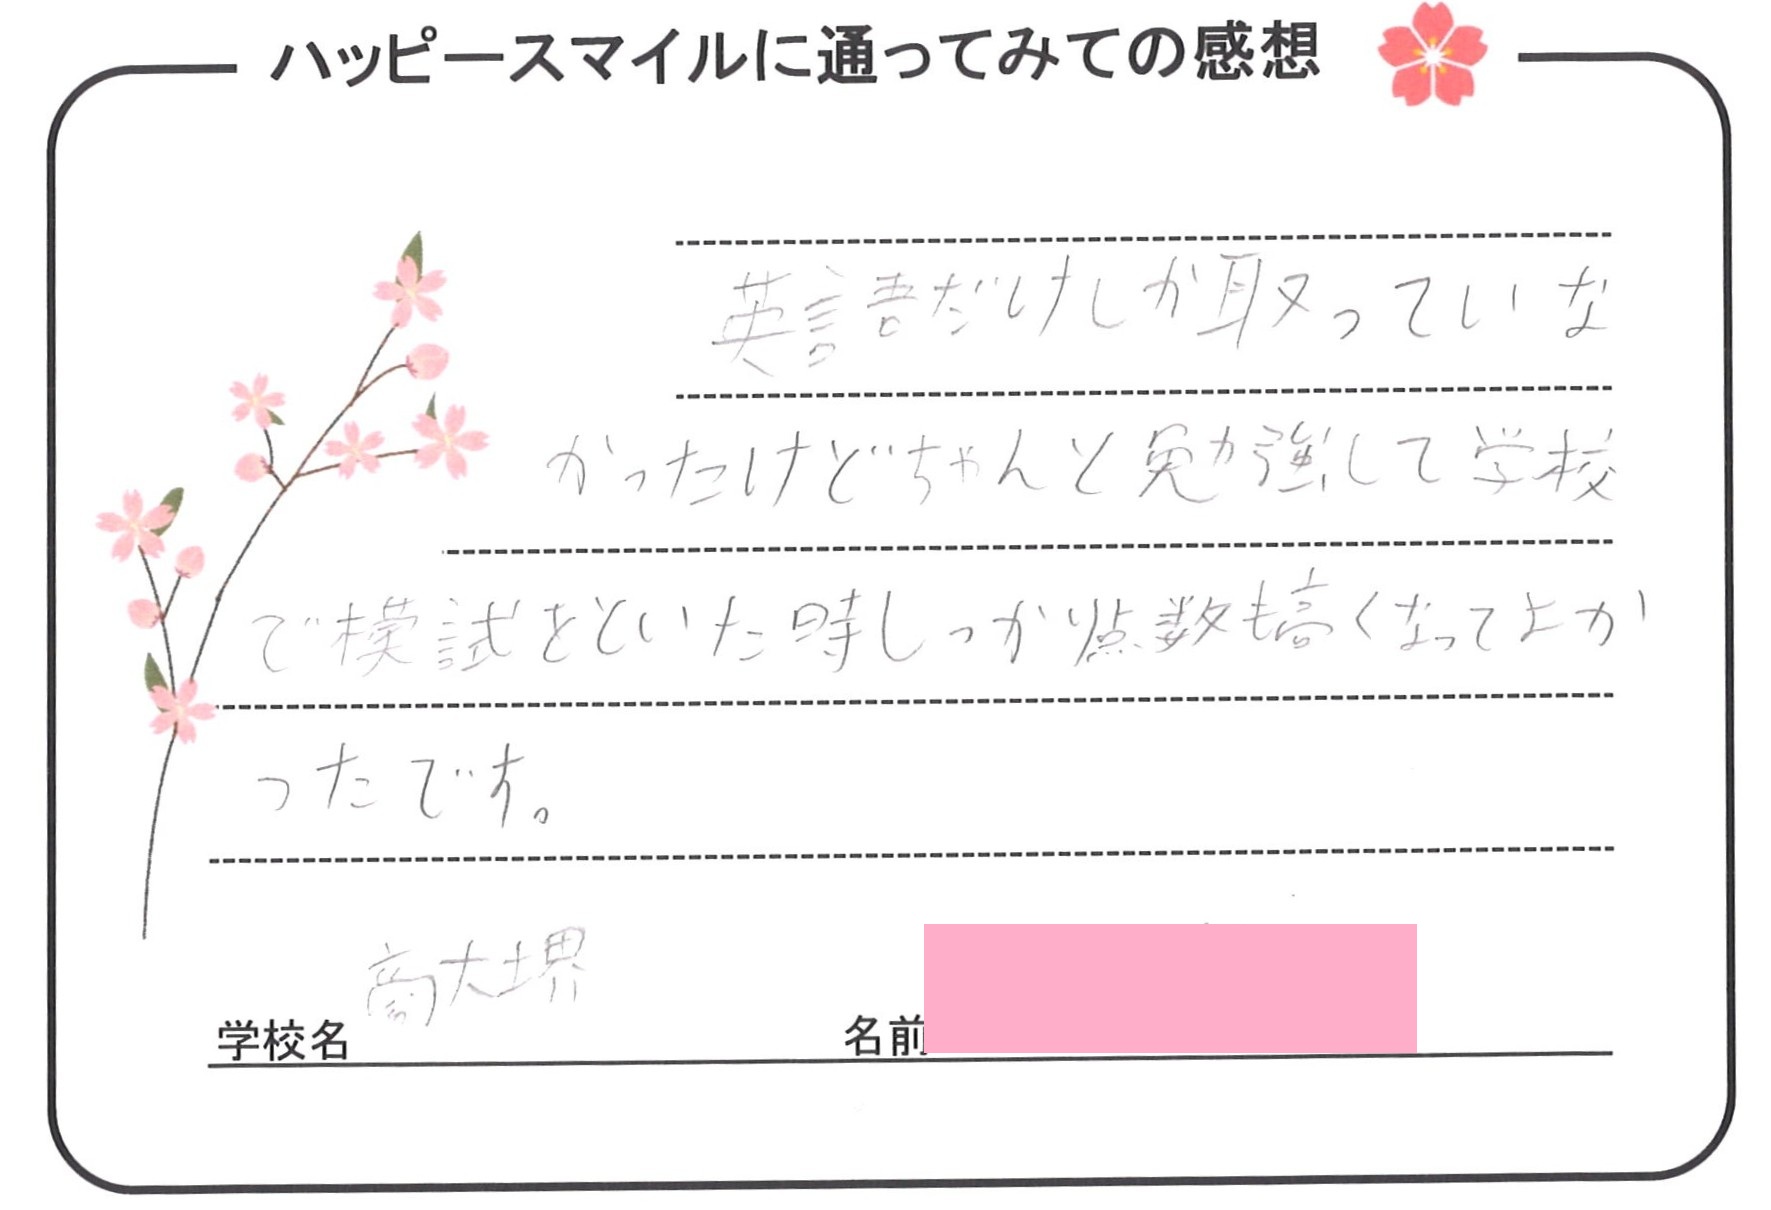 ハッピースマイルに通ってみての感想
英語だけしか取っていな
かったけどちゃんと勉強して学校
で模試をといた時しっか点数も高くなってよか
ったです。
商大堺
学校名
名前